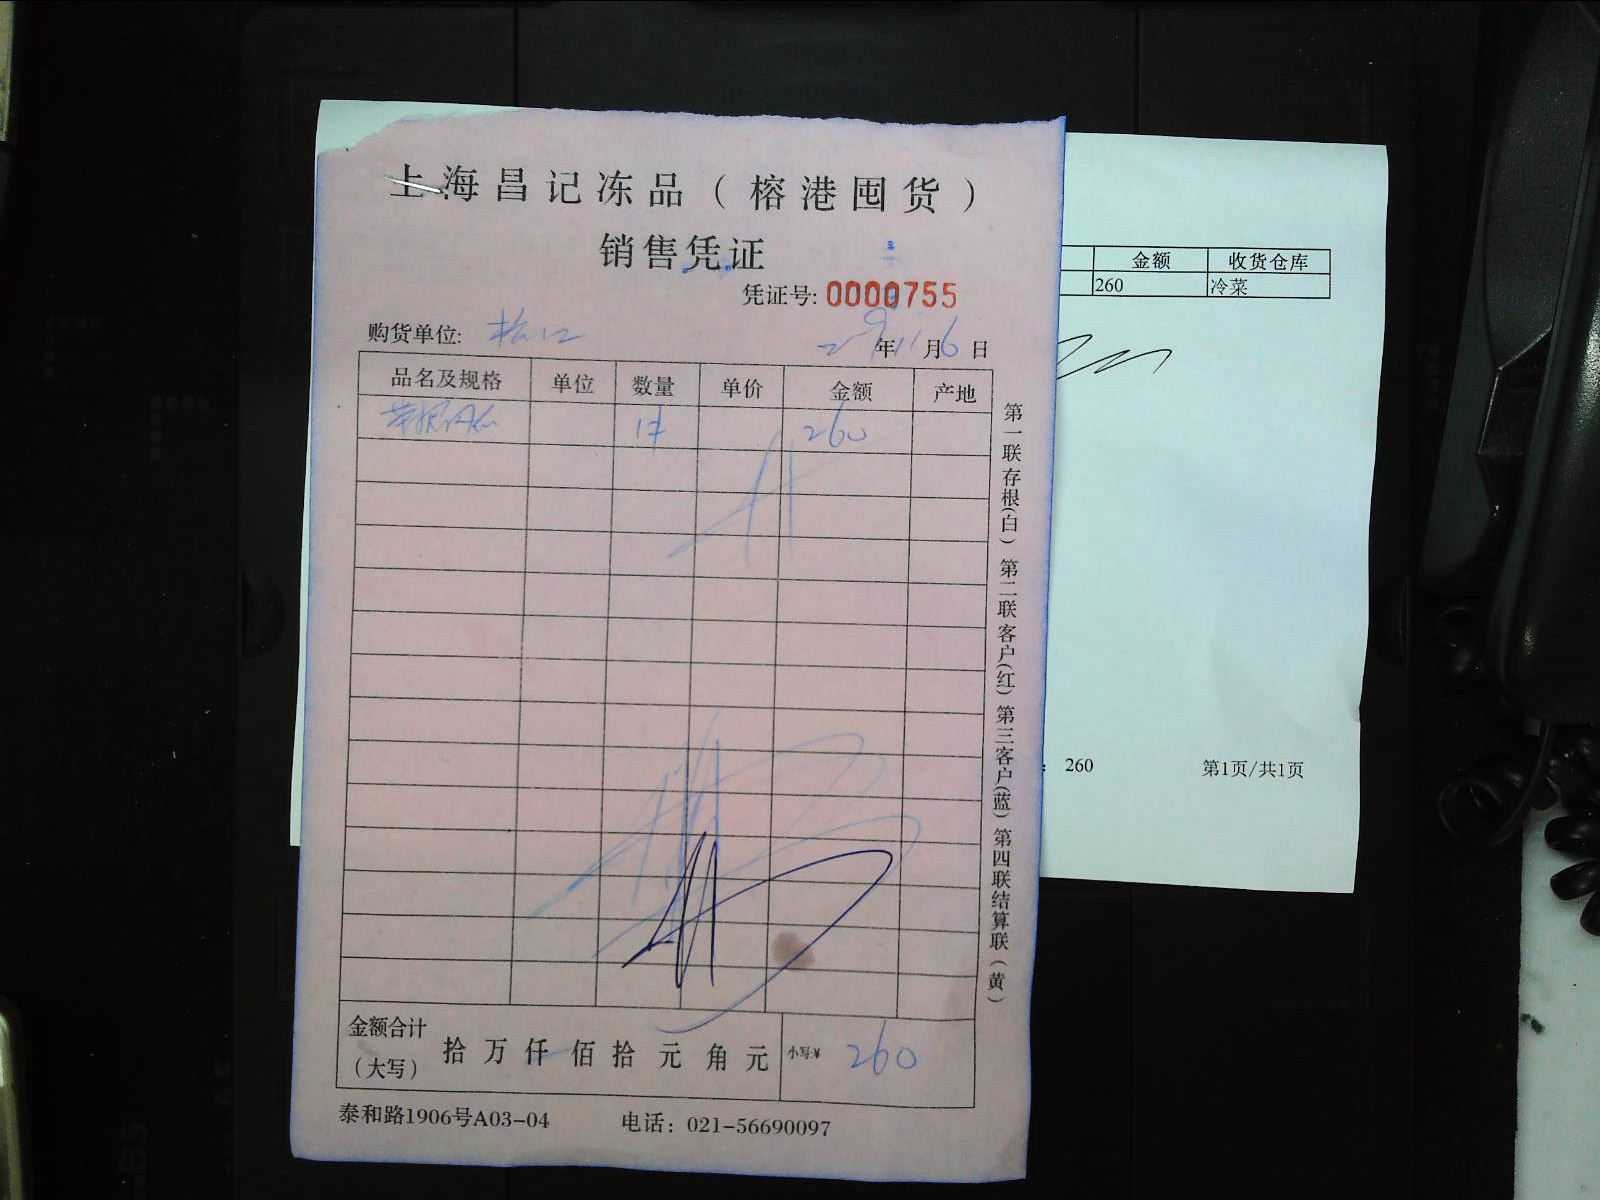 上海昌记冻品（榕港囤货）
销售凭证
凭证号: 0000755
购货单位: 松江
年11月6日
品名及规格 单位 数量 单价 金额 产地
1件 260
金额合计（大写） 拾 万 仟 佰 拾 元 角 元 小写:¥ 260
泰和路1906号A03-04 电话：021-56690097
第一联存根(白) 第二联客户(红) 第三客户(蓝) 第四联结算联(黄)
金额 收货仓库
260 冷菜
: 260 第1页/共1页